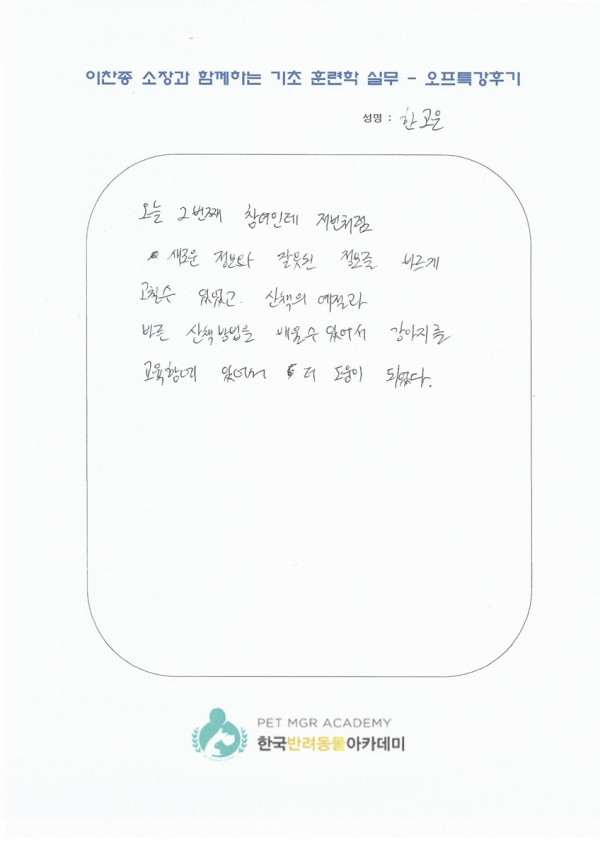 이찬종 소장과 함께하는 기초 훈련학 실무 - 오프특강후기
성명 : 한고은
오늘 2번째 참여인데 저번처럼
새로운 정보와 잘못된 정보를 바르게
고칠수 있었고. 산책의 예절과
바른 산책방법을 배울수있어서 강아지를
교육함에 있어서 더 도움이 되었다.
PET MGR ACADEMY
한국반려동물아카데미